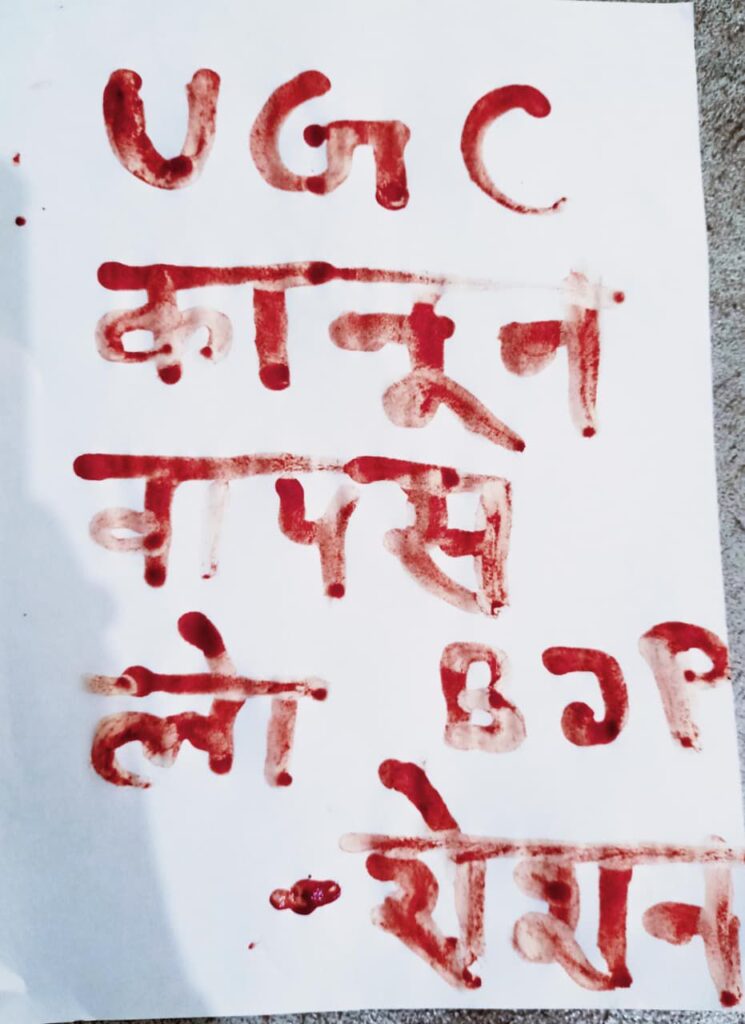 UGC
कानून
वापस
लो BJP
- रोशन